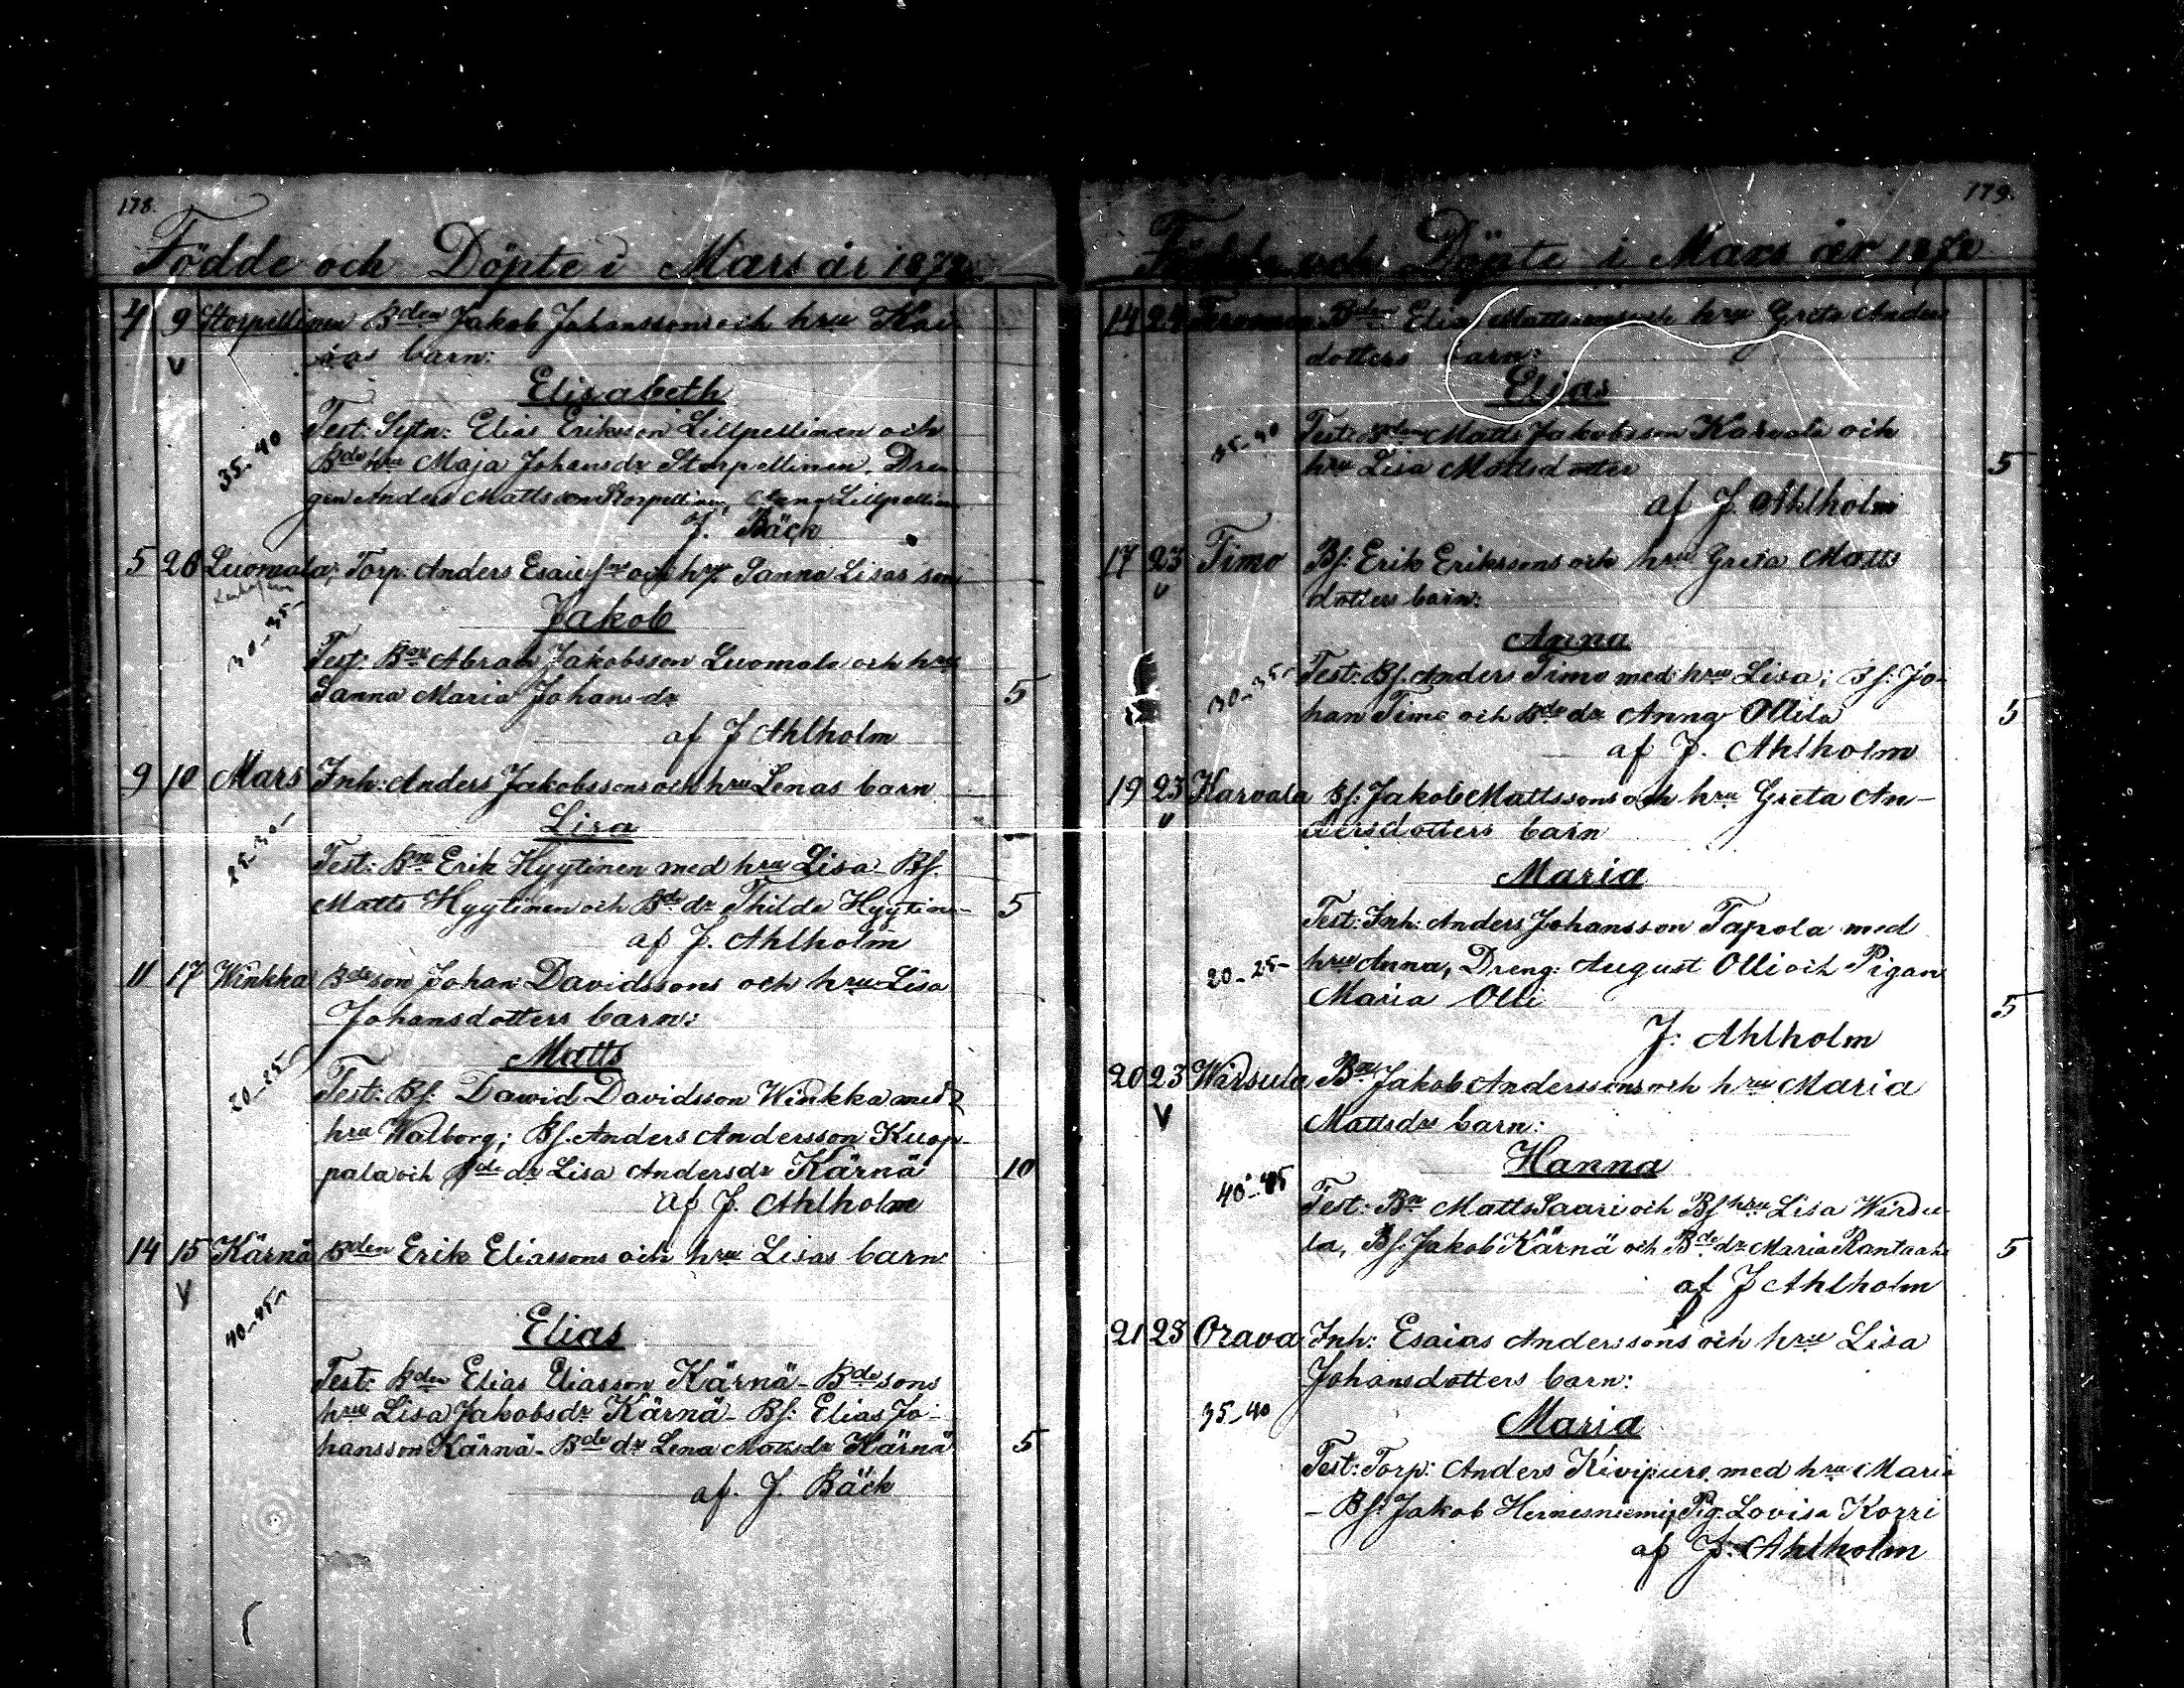 178.
Födde och Döpte i Mars år 187
4 9 Storpellinen Bden Jakob Johanssons och hru Kai
sas barn:
V
Elisabeth
35-40
Test: Sytn: Elias Eriksson Lillpellinen och
Bde hru Maja Johansdr Storpellinen. Dren
gen Anders Mattsson Storpellinen, Lillpellinen
af J. Bäck
5 20 Luomala; Torp: Anders Esaiæsns och hru Sanna Lisas son
Jakob
30-35-
Test: Bon Abrah Jakobsson Luomala och hru
Sanna Maria Johans-dr 5
af J Ahlholm
9 10 Mars Inh: Anders Jakobssons och hru Lenas barn
Lisa
25-30-
Test: Bon Erik Hyytinen med hru Lisa - Bs.
Matts Hyytinen och Bde dr Thilda Hyytin- 5
af J. Ahlholm
11 17 Winkka Bde son Johan Davidssons och hru Lisa
Johansdotters barn:
Matts
20-25-
Test: Bs: Dawid Davidsson Winkka med
hru Walborg; Bs. Anders Andersson Kuop-
pala och Bde dr Lisa Andersdr Kärnä 10
af J. Ahlholm
14 15 Kärnä Bden Erik Eliassons och hru Lisas barn
V
40-45-
Elias
Test: Bden Elias Eliasson Kärnä - Bde sons
hru Lisa Jakobsdr Kärnä - Bs: Elias Jo-
hansson Kärnä - Bde dr Lena Mattsdr Kärnä 5
af. J. Bäck
179.
Födde och Döpte i Mars år 187
14 24 Bden Elias Mattssons och hru Greta Anders
dotters barn:
Elias
35-40
Test: Bden Matts Jakobsson Karvala och
hru Lisa Mattsdotter 5
af J. Ahlholm
17 23 Timo Bs: Erik Erikssons och hru Greta Matts
dotters barn:
V
Anna
30-35-
Test: Bs. Anders Timo med hru Lisa; Bs: Jo-
han Timo och Bde dr Anna Ollila 5
af J. Ahlholm
19 23 Karvala Bs: Jakob Mattssons och hru Greta An-
dersdotters barn
V
Maria
Test: Inh: Anders Johansson Tapola med
20-25-
hru Anna, Dreng: August Olli och Pigan
Maria Olli 5
J. Ahlholm
20 23 Wirsula Bon Jakob Anderssons och hru Maria
Mattsdrs barn:
V
Hanna
40-45
Test: Bn Matts Saari och Bs hru Lisa Wirdu-
la, Bs: Jakob Kärnä och Bde dr Maria Rantaaho 5
af J Ahlholm
21 23 Orava Inh: Esaias Anderssons och hru Lisa
Johansdotters barn:
35-40
Maria
Test: Torp: Anders Kivipuro med hru Maria
- Bs: Jakob Hernesniemi, Pig. Lovisa Korri
af J. Ahlholm